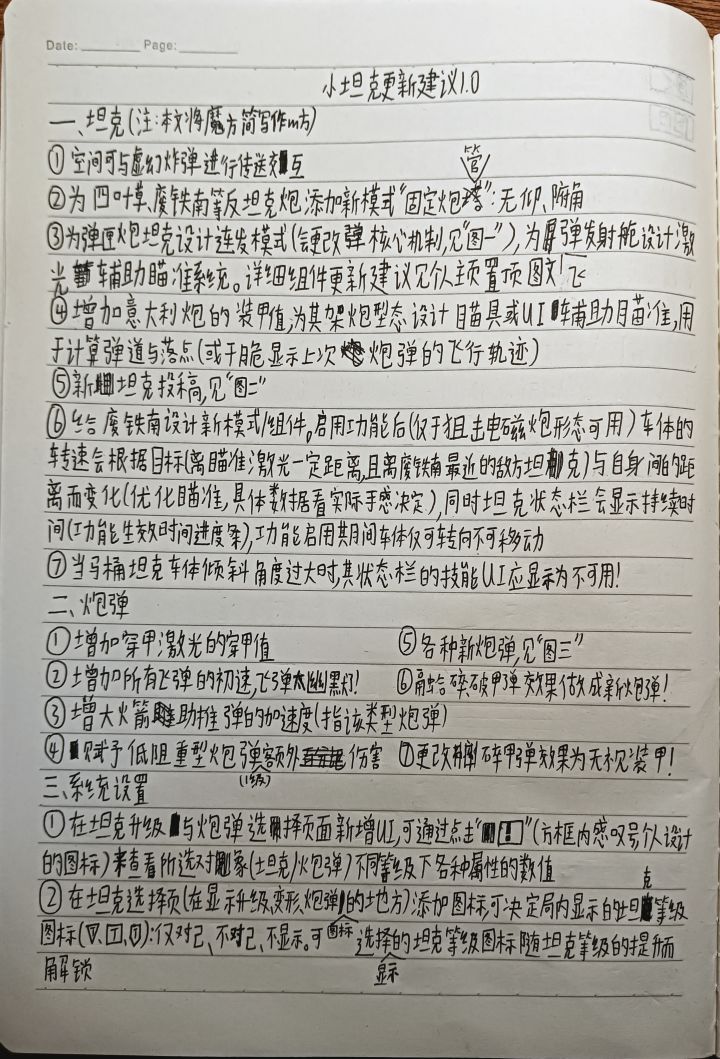 Date: Page:
小坦克更新建议1.0
一、坦克(注:本文将魔方简写作m方)
①空间可与虚幻炸弹进行传送交互
②为四叶草、废铁南等反坦克炮添加新模式“固定炮管”:无仰、俯角
③为弹匣炮坦克设计连发模式(会更改弹核心机制,见“图一”),为飞弹发射舱设计激
光辅助瞄准系统。详细组件更新建议见个人主页置顶图文!
④增加意大利炮的装甲值,为其架炮型态设计瞄具或UI辅助瞄准,用
于计算弹道与落点(或干脆显示上次炮弹的飞行轨迹)
⑤新坦克投稿,见“图二”
⑥给废铁南设计新模式/组件。启用功能后(仅于狙击电磁炮形态可用)车体的
转速会根据目标(离瞄准激光一定距离,且离废铁南最近的敌方坦克)与自身间的距
离而变化(优化瞄准,具体数据看实际手感决定),同时坦克状态栏会显示持续时
间(功能生效时间进度条),功能启用其期间车体仅可转向不可移动
⑦当马桶坦克车体倾斜角度过大时,其状态栏的技能UI应显示为不可用!
二、炮弹
①增加穿甲激光的穿甲值 ⑤各种新炮弹,见“图三”
②增加所有飞弹的初速,飞弹太幽默! ⑥碎破甲弹效果做成新炮弹!
③增大火箭助推弹的加速度(指该类型炮弹)
④赋予低阻重型炮弹额外伤害 ⑦更改碎甲弹效果为无视装甲!
(1级)
三、系统设置
①在坦克升级与炮弹选择页面新增UI,可通过点击“[!]”(方框内感叹号,个人设计
的图标)来查看所选对象(坦克/火炮弹)不同等级下各种属性的数值
②在坦克选择项(在显示升级,变形,炮弹的地方)添加图标,可决定局内显示的坦克等级
图标(▽、工、◎):仅对己、不对己、不显示。可图标选择的坦克等级图标随坦克等级的提升而
解锁 显示